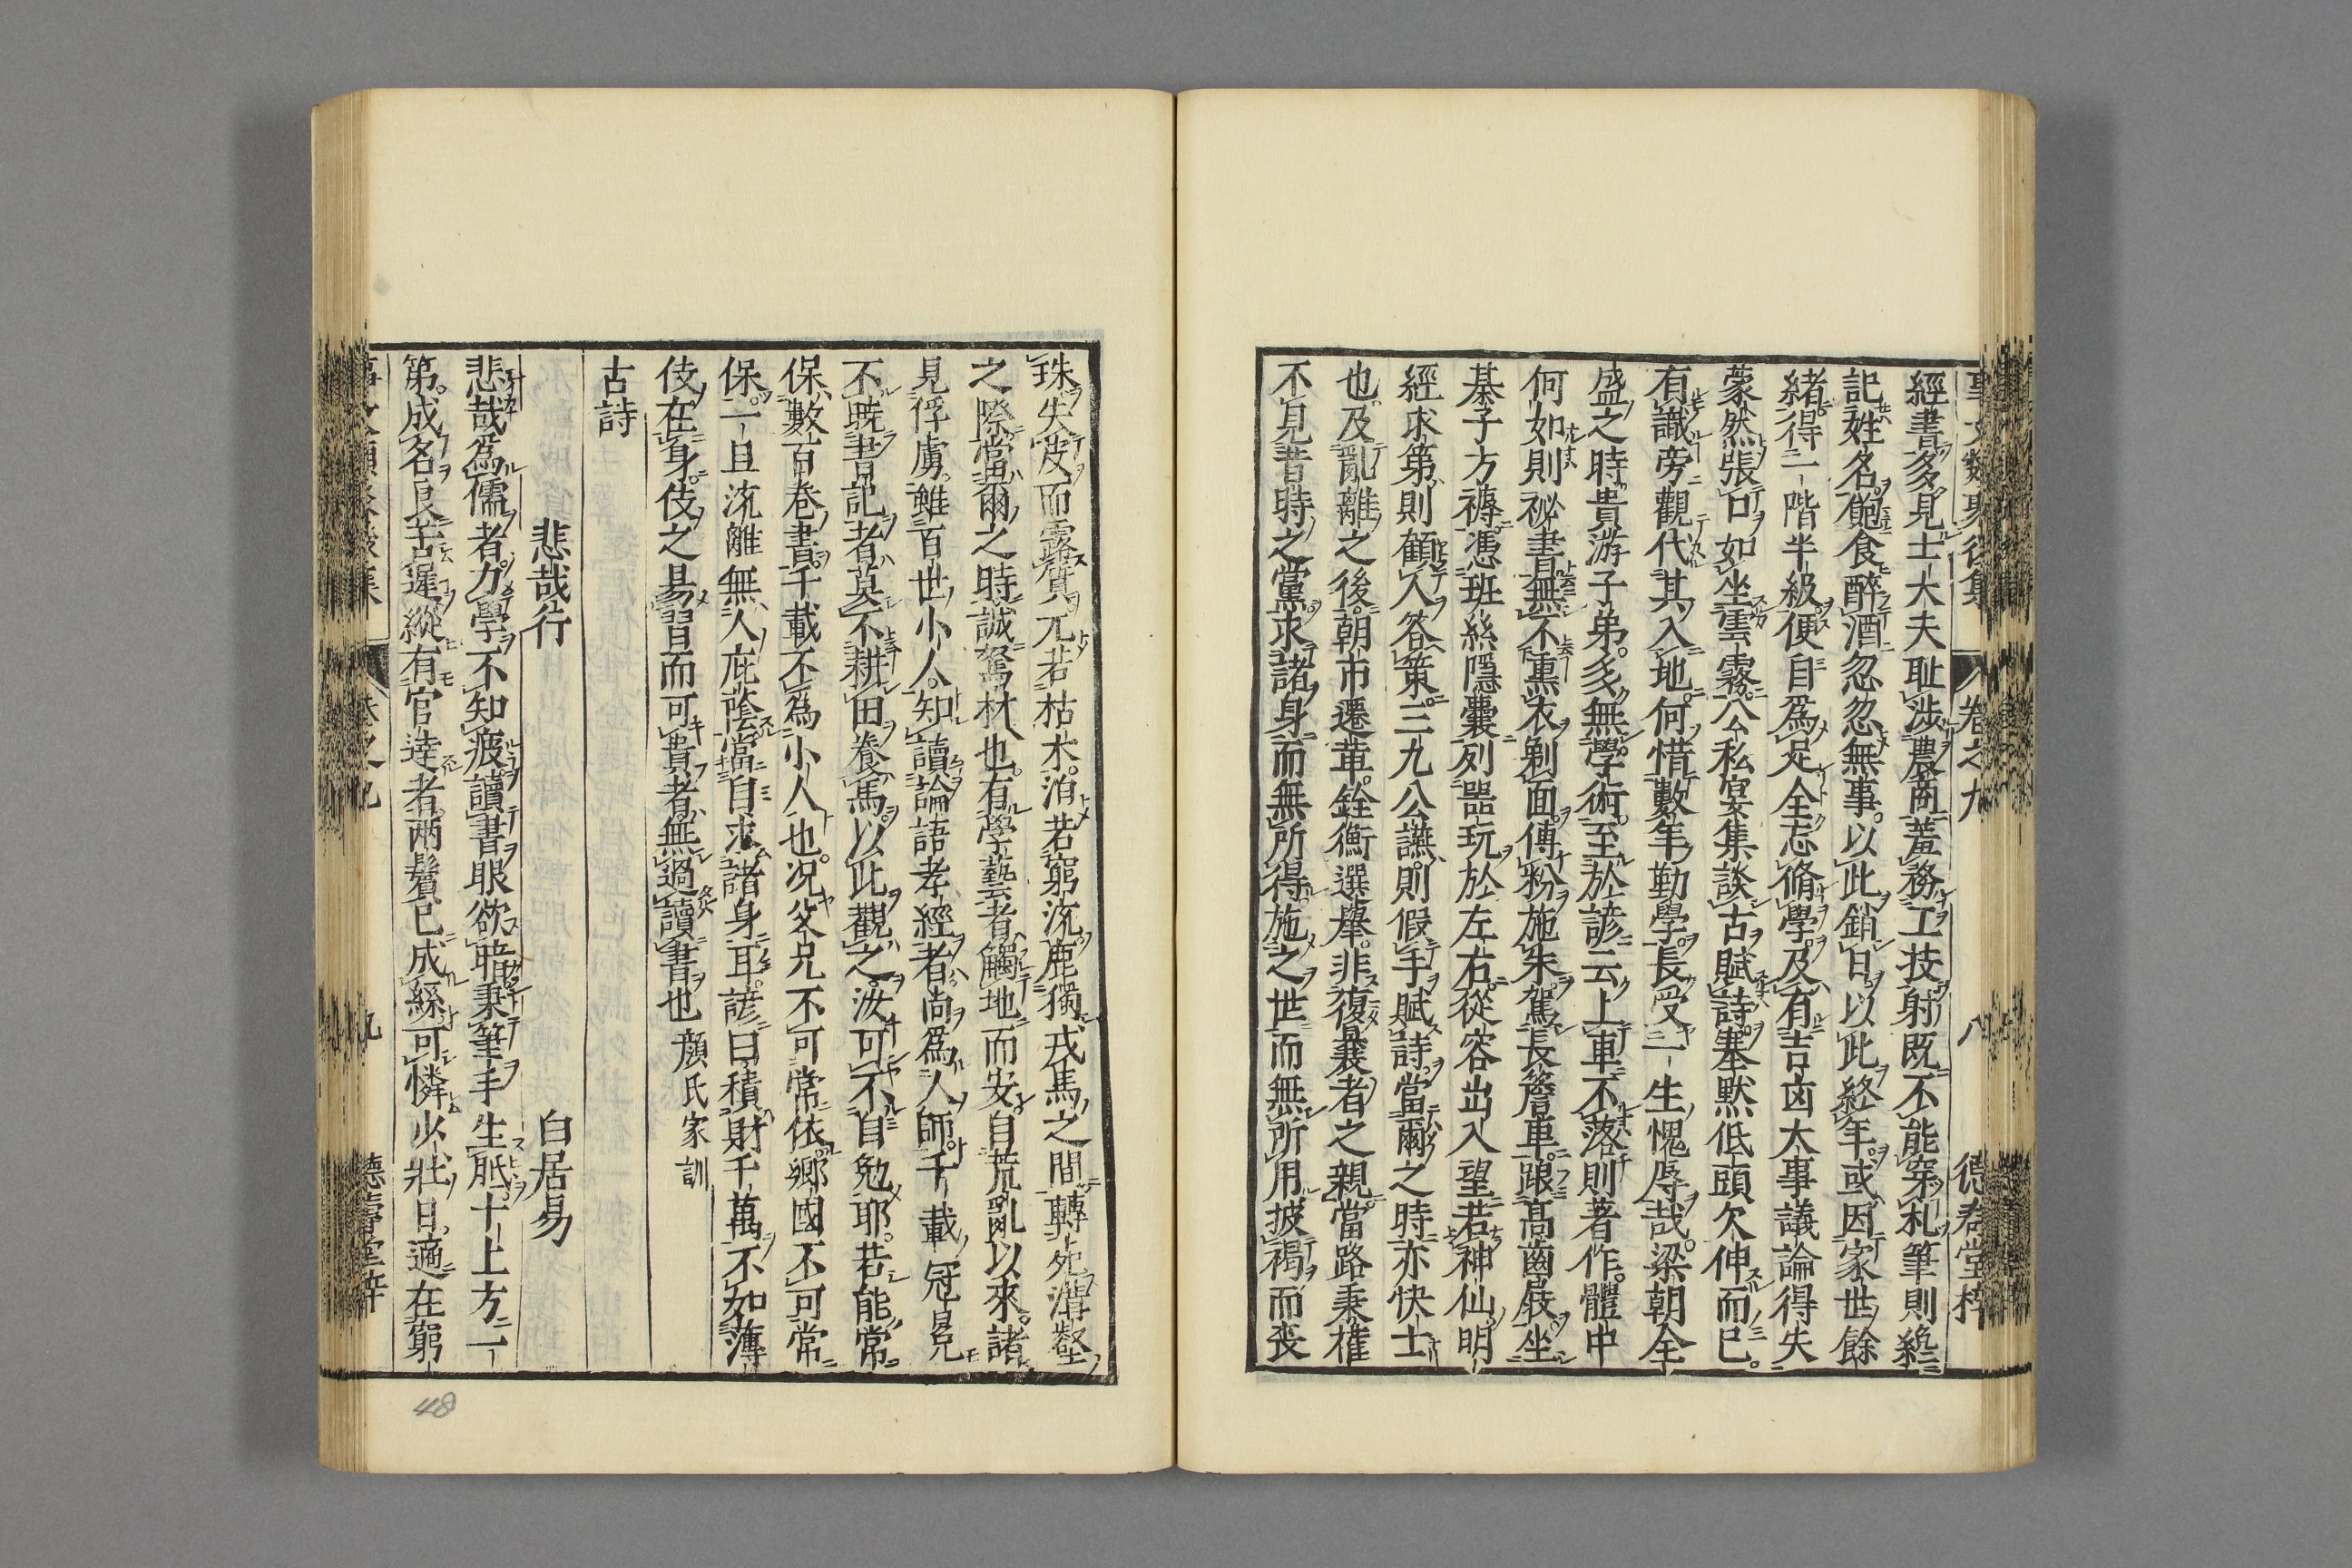 事文類聚後集 卷之九 八 德壽堂梓
經書多見士大夫耻渉農商羞務工技射既不能穿札筆則纔
記姓名飽食醉酒忽忽無事以此銷日以此終年或因家世餘
緒得一階半級便自爲足全忘脩學及有吉凶大事議論得失
蒙然張口如坐雲霧公私宴集談古賦詩塞默低頭欠伸而已
有識旁觀代其入地何惜數年勤學長受一生愧辱哉梁朝全
盛之時貴游子弟多無學術至於諺云上車不落則著作體中
何如則祕書無不熏衣剃面傅粉施朱駕長簷車跟高齒屐坐
棊子方褥憑班絲隱囊列器玩於左右從容出入望若神仙明
經求第則顧人答策三九公讌則假手賦詩當爾之時亦快士
也及亂離之後朝市遷革銓衡選舉非復曩者之親當路秉權
不見昔時之黨求諸身而無所得施之世而無所用披褐而喪
珠失皮而露質兀若枯木泊若窮流鹿獨戎馬之間轉死溝壑
之際當爾之時誠駑材也有學藝者觸地而安自荒亂以來諸
見俘虜雖百世小人知讀論語孝經者尚爲人師千載冠冕
不曉書記者莫不耕田養馬以此觀之汝可不自勉耶若能常
保數百卷書千載不爲小人也况父兄不可常依鄉國不可常
保一旦流離無人庇蔭當自求諸身耳諺曰積財千萬不如薄
伎在身伎之易習而可貴者無過讀書也 顏氏家訓
古詩
悲哉行 白居易
悲哉爲儒者力學不知疲讀書眼欲暗秉筆手生胝十上方一
第成名艮苦遲縱有官達者兩鬢已成絲可憐少壯日適在窮
事文類聚後集 卷之九 九 德壽堂梓
48